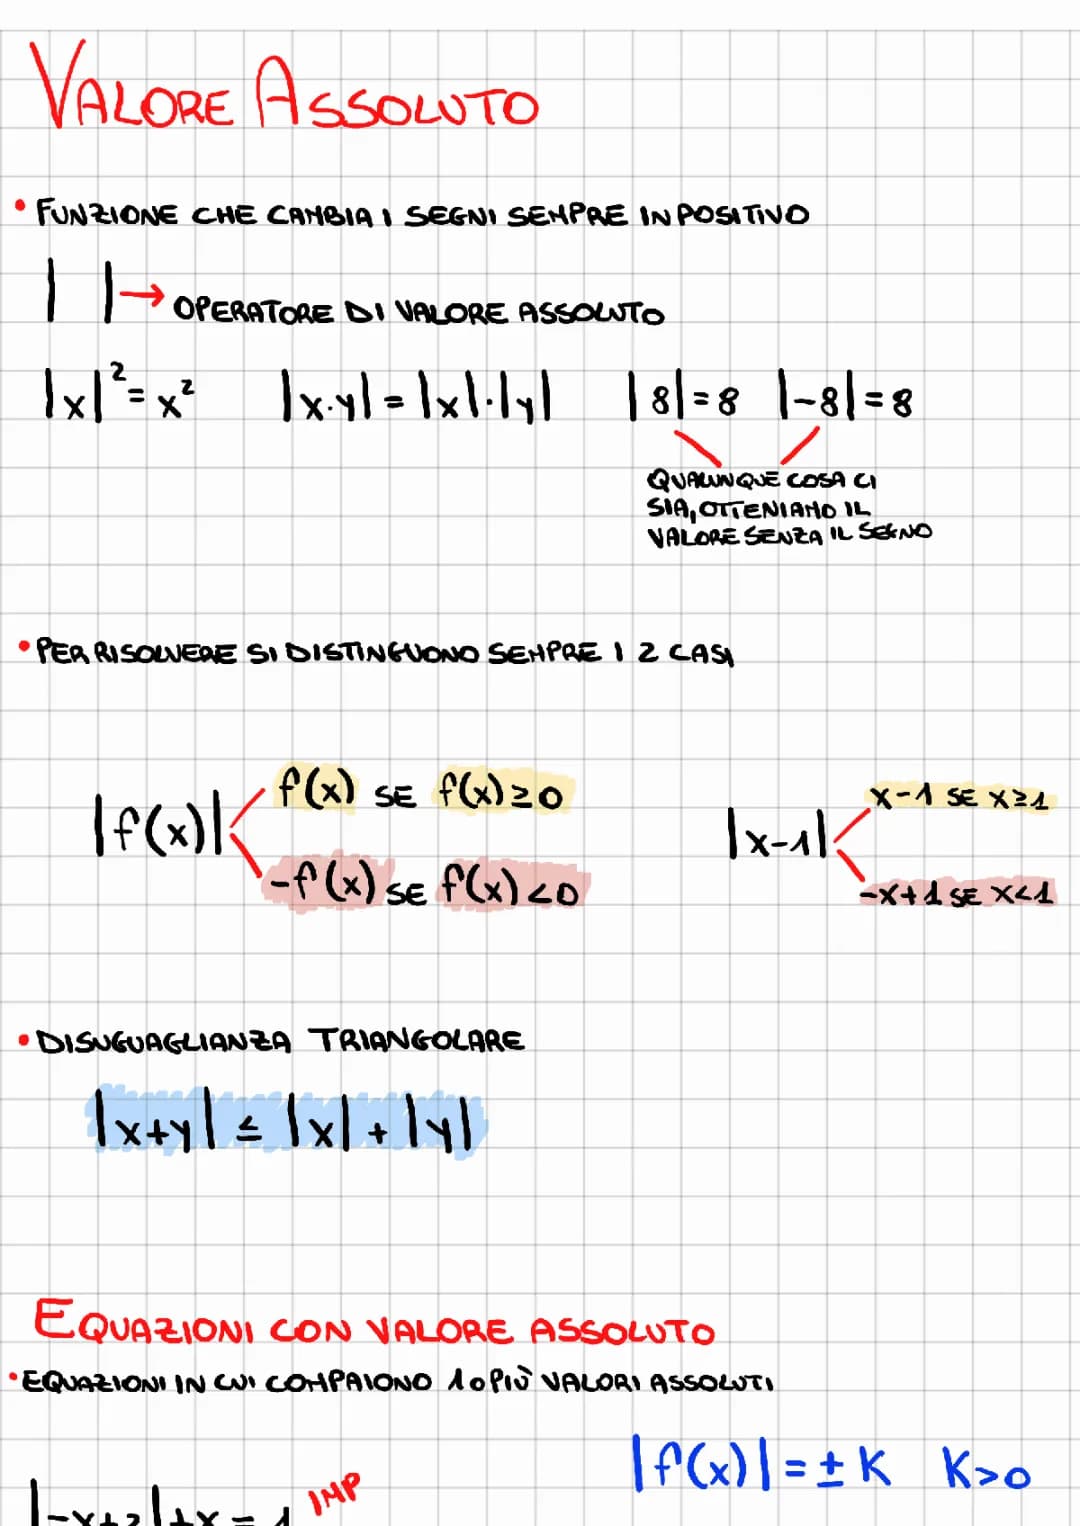 VALORE ASSOLUTO
• FUNZIONE CHE CAMBIA I SEGNI SEMPRE IN POSITIVO
| | → OPERATORE DI VALORE ASSOLUTO
|x|² = x² |x·y| = |x|·|y| |8| = 8 |-8| = 8
QUALUNQUE COSA CI
SIA, OTTENIAMO IL
VALORE SENZA IL SEGNO
• PER RISOLVERE SI DISTINGUONO SEMPRE I 2 CASI
|f(x)|
f(x) SE f(x) ≥ 0
-f(x) SE f(x) < 0
|x-1|
x-1 SE x≥1
-x+1 SE x<1
• DISUGUAGLIANZA TRIANGOLARE
|x+y| ≤ |x| + |y|
EQUAZIONI CON VALORE ASSOLUTO
• EQUAZIONI IN CUI COMPAIONO 1 O PIÙ VALORI ASSOLUTI
|f(x)| = ± K K>0
|-x+2|+x = 1 IMP